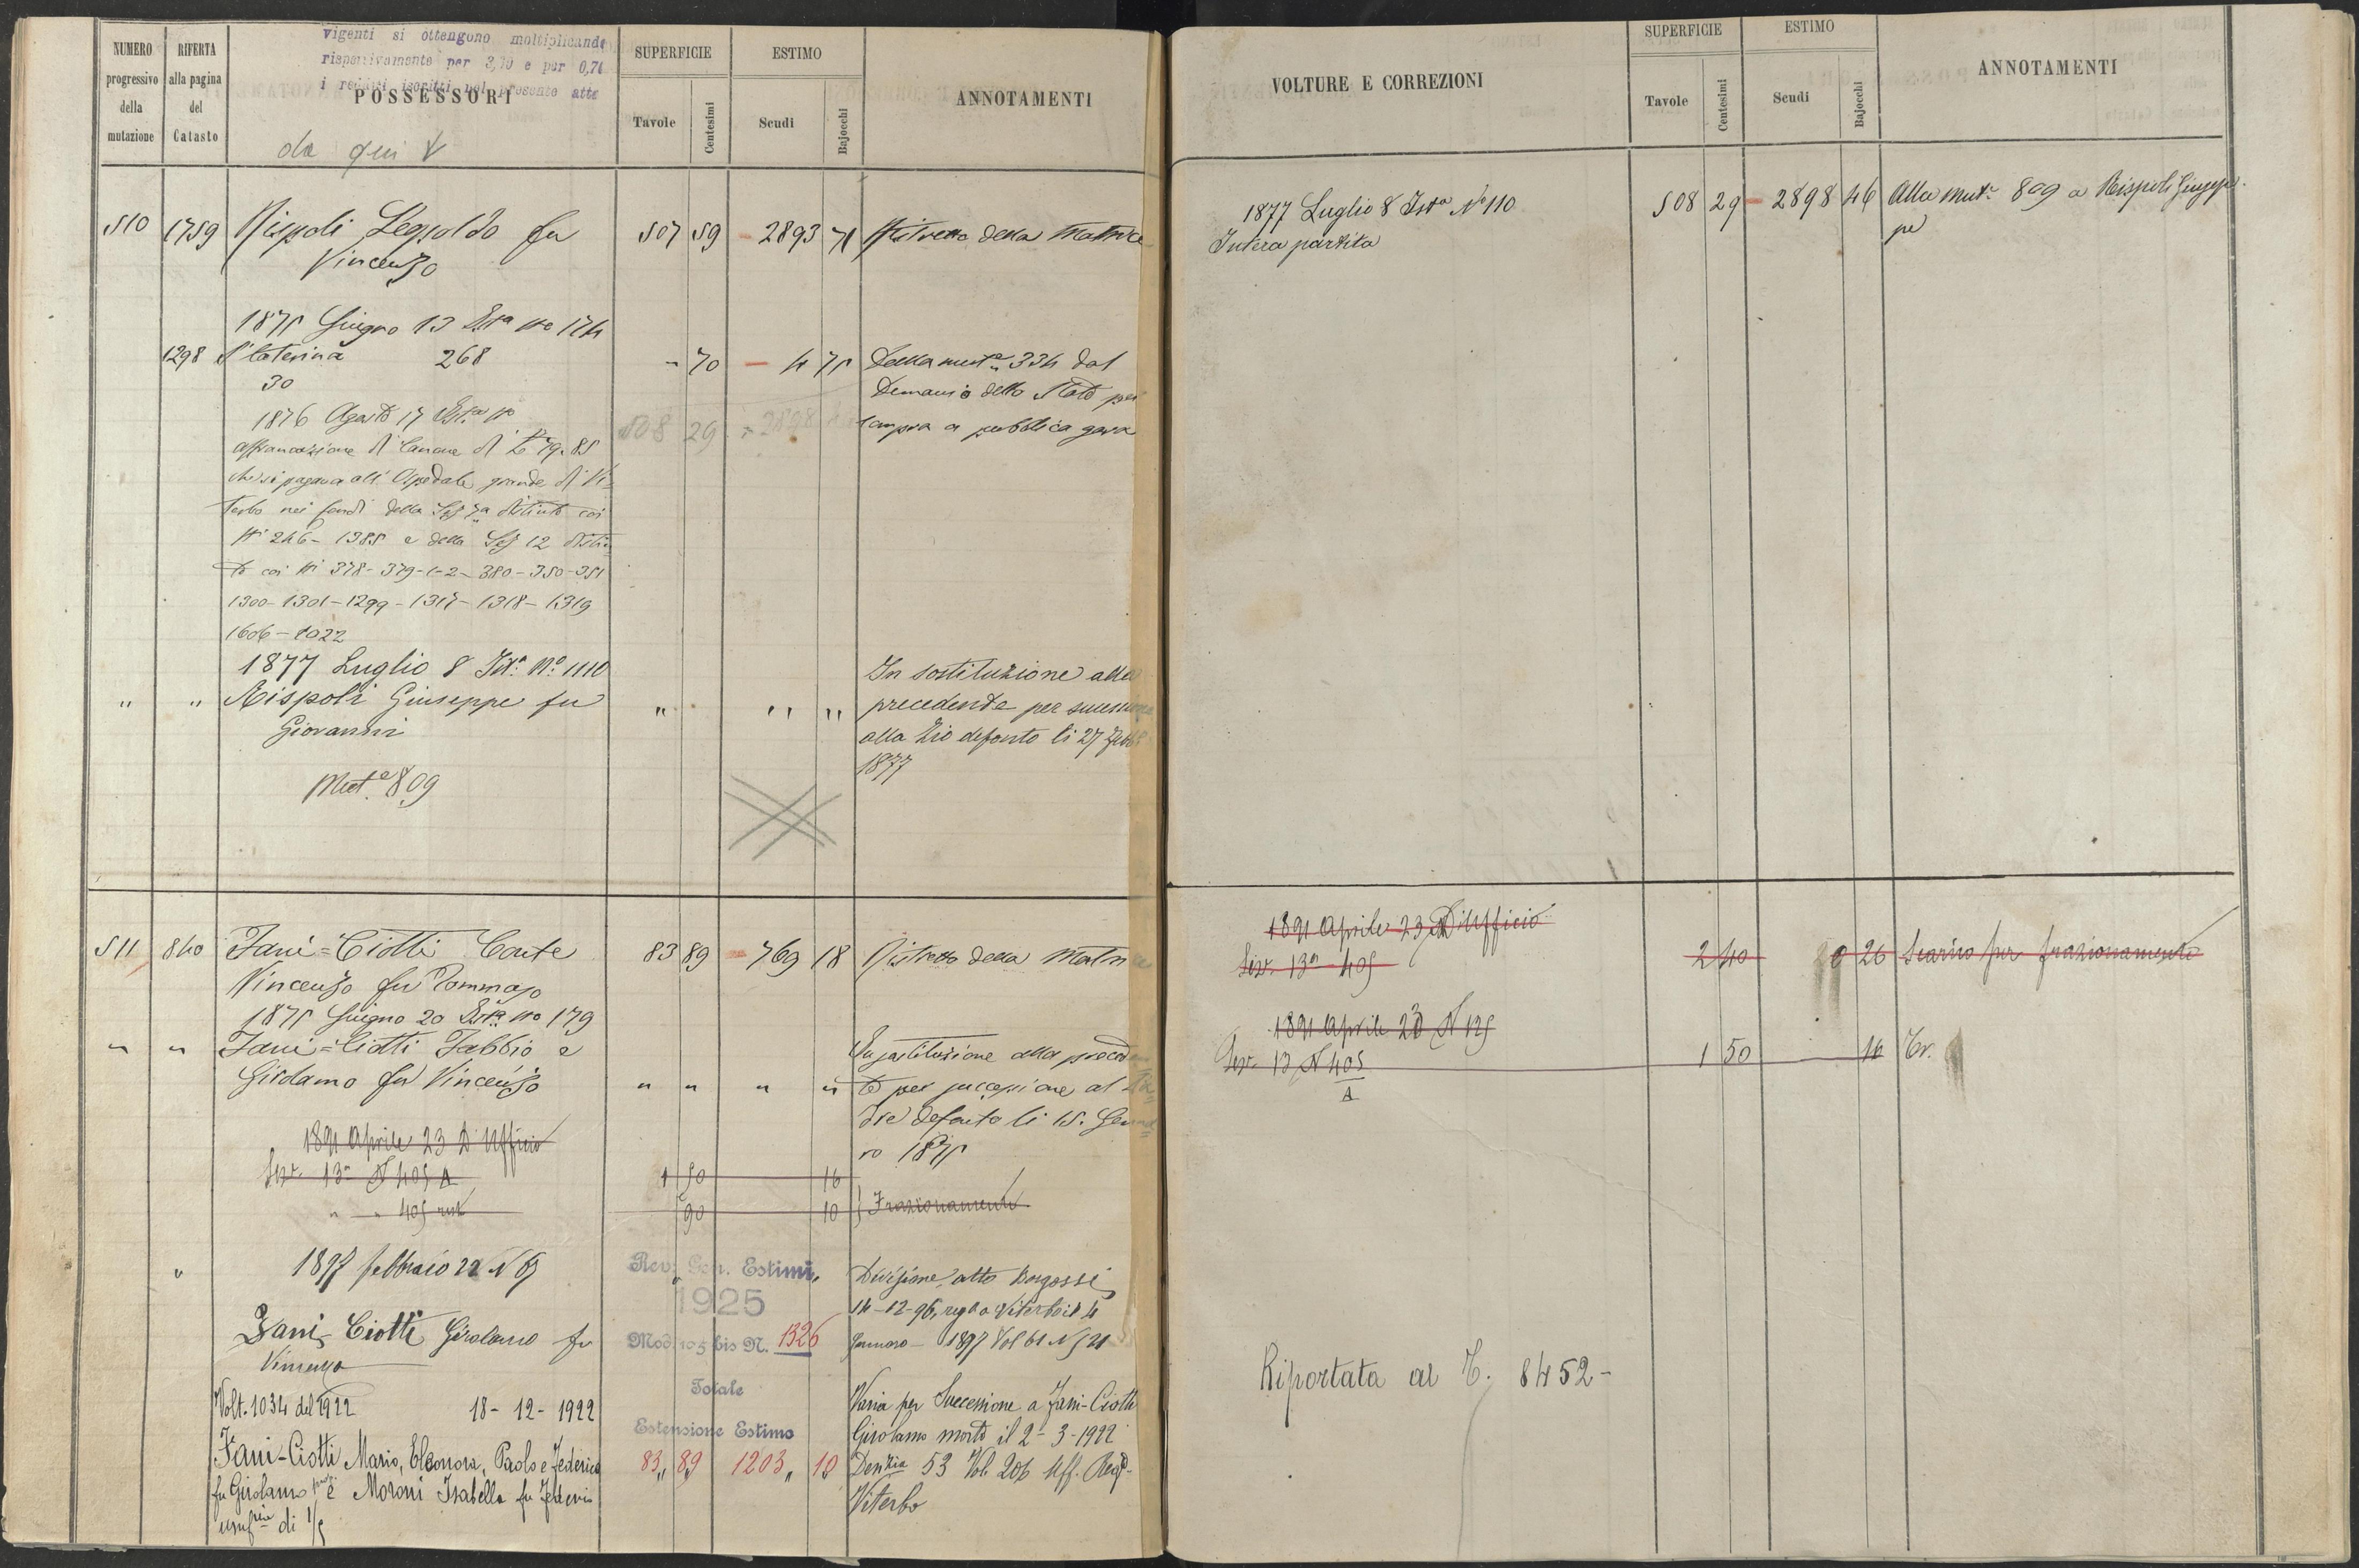 NUMERO
progressivo
della
mutazione
RIFERTA
alla pagina
del
Catasto
vigenti si ottengono moltiplicando
rispettivamente per 3,10 e per 0,74
i redditi iscritti nel presente atto
POSSESSORI
da qui
SUPERFICIE
Tavole
Centesimi
ESTIMO
Scudi
Bajocchi
ANNOTAMENTI
510 1759 Rispoli Leopoldo fu 507 59 - 2893 71 Ristretto della Matrice
Vincenzo
1875 Giugno 13 Ista No 174
1298 S Caterina 268 - 70 - 4 75 Dalla muta 334 dal
30 Demanio dello Stato per
1876 Agosto 17 Ista No 508 29 - 2898 compra a pubblica gara
affrancazione di Canone di £ 79.85
che si pagava all' Ospedale grande di Vi-
terbo nei fondi della Sez 7a distinto coi
Ni 246 - 1385 e della Sez 12 distin
to coi Ni 378 - 379-1-2 - 380 - 350 - 351
1300 - 1301 - 1299 - 1317 - 1318 - 1319
1606 - 1022
1877 Luglio 8 Ista No 1110 In sostituzione alla
" " Rispoli Giuseppe fu " " " precedente per successione
Giovanni alla Zio defonto li 27 Febb
1877
Muta 809
511 840 Fani=Ciotti Conte 83 89 - 769 18 Ristretto della Matrice
Vincenzo fu Tommaso
1875 Giugno 20 Ista No 179
" " Fani=Ciotti Fabbio e In sostituzione alla preceden
Girolamo fu Vincenzo " " " " te per successione al Pa
dre defonto li 15. Genna
ro 1875
1891 Aprile 23 D'Ufficio
Sez. 13a N 405 A 1 50 16
" " 405 rest 90 10 } Frazionamento
" 1897 febbraio 22 N 69 Divisione atto Borgassi
14-12-96, regto a Viterbo il 4
Gennaro 1897 Vol 61 N 521
Fani-Ciotti Girolamo fu
Vincenzo
Rev. Gen. Estimi
1925
Mod. 105 bis N. 1326
Totale
Estensione Estimo
83,, 89 1203,, 10
Volt. 1034 del 1922 18-12-1922 Varia per Successione a Fani-Ciotti
Girolamo morto il 2-3-1922
Fani-Ciotti Mario, Eleonora, Paolo e Federico Denzia 53 Vol 206 Uff. Reg.
fu Girolamo e Moroni Isabella fu Federico Viterbo
usufria di 1/5
VOLTURE E CORREZIONI
SUPERFICIE
Tavole
Centesimi
ESTIMO
Scudi
Bajocchi
ANNOTAMENTI
1877 Luglio 8 Ista No 110 508 29 - 2898 46 Alla muta 809 a Rispoli Giusep
Intera partita pe
1891 Aprile 23 D'Ufficio
Sez. 13a 405 2 40 0 26 Scarico per frazionamento
1891 Aprile 23 N 125
Sez. 13 N 405 1 50 16 Tr.
A
Riportata al T. 8452-